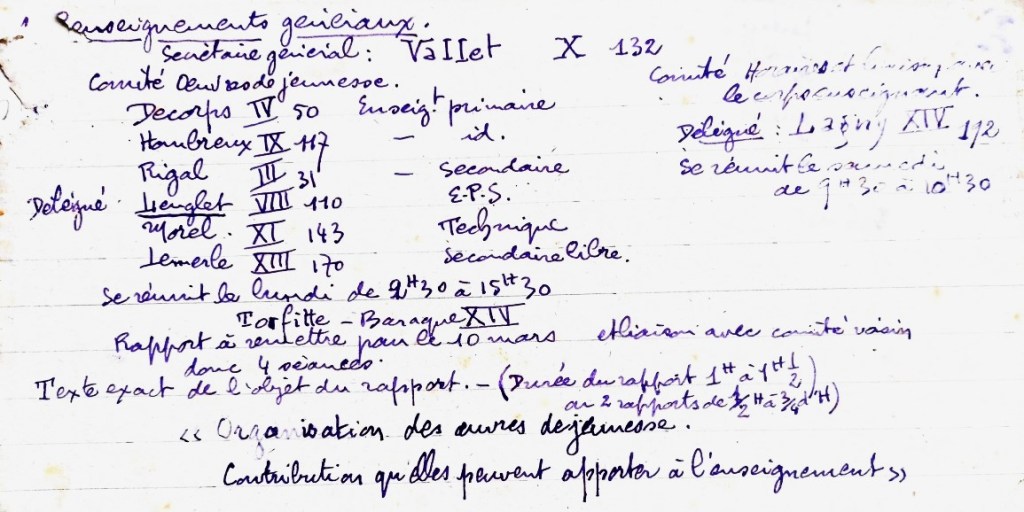 Renseignements généraux.
Secrétaire général : Vallet X 132
Comité Oeuvres de jeunesse.
Decorps IV 50 Enseigt primaire
Hombreux IX 117 — id.
Rigal III 31 — secondaire
Délégué Lenglet VIII 110 E.P.S.
Morel. XI 143 Technique
Lemerle XIII 170 secondaire libre.
Comité Horaires et
le corps enseignant.
Délégué : Lagny XIV 112
se réunit le samedi
de 9H30 à 10H30
se réunit le lundi de H30 à 15H30
Torfitte - Baraque XIV
Rapport à remettre pour le 10 mars et liaison avec comité voisin
donc 4 séances.
Texte exact de l'objet du rapport. - (Durée du rapport 1H à 1H 1/2)
ou 2 rapports de 1/2 H à 3/4 d'H)
« Organisation des œuvres de jeunesse.
Contribution qu'elles peuvent apporter à l'enseignement »